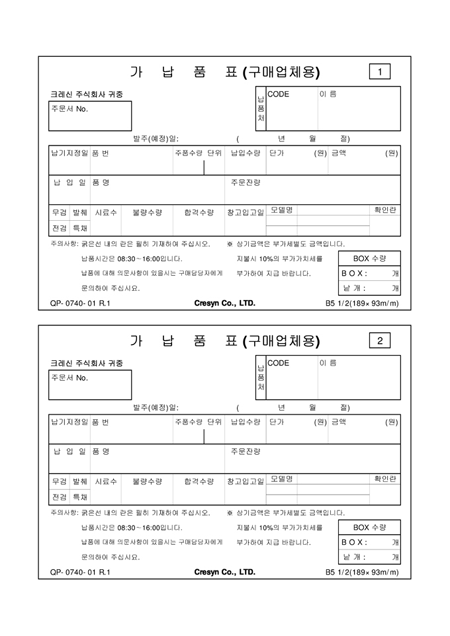 가 납 품 표 (구매업체용) 1
크레신 주식회사 귀중
주문서 No.
납품처 CODE 이 름
발주(예정)일: ( 년 월 절)
납기지정일 품 번 주품수량 단위 납입수량 단가 (원) 금액 (원)
납 입 일 품 명 주문잔량
무검 발췌 시료수 불량수량 합격수량 창고입고일 모델명 확인란
전검 특채
주의사항: 굵은선 내의 란은 필히 기재하여 주십시오. ※ 상기금액은 부가세별도 금액입니다.
납품시간은 08:30~16:00입니다. 지불시 10%의 부가가치세를 BOX 수량
납품에 대해 의문사항이 있을시는 구매담당자에게 부가하여 지급 바랍니다. B O X : 개
문의하여 주십시요. 낱 개 : 개
QP- 0740- 01 R.1 Cresyn Co., LTD. B5 1/2(189× 93m/m)
가 납 품 표 (구매업체용) 2
크레신 주식회사 귀중
주문서 No.
납품처 CODE 이 름
발주(예정)일: ( 년 월 절)
납기지정일 품 번 주품수량 단위 납입수량 단가 (원) 금액 (원)
납 입 일 품 명 주문잔량
무검 발췌 시료수 불량수량 합격수량 창고입고일 모델명 확인란
전검 특채
주의사항: 굵은선 내의 란은 필히 기재하여 주십시오. ※ 상기금액은 부가세별도 금액입니다.
납품시간은 08:30~16:00입니다. 지불시 10%의 부가가치세를 BOX 수량
납품에 대해 의문사항이 있을시는 구매담당자에게 부가하여 지급 바랍니다. B O X : 개
문의하여 주십시요. 낱 개 : 개
QP- 0740- 01 R.1 Cresyn Co., LTD. B5 1/2(189× 93m/m)